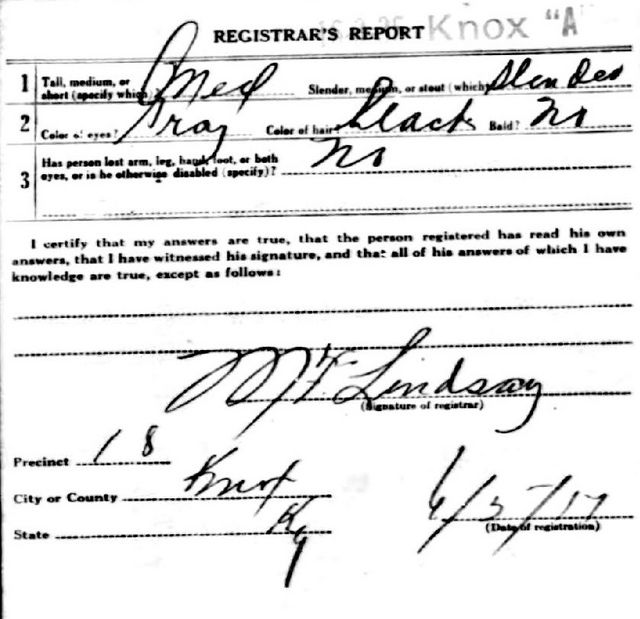 REGISTRAR'S REPORT Knox "A"
1 Tall, medium, or short (specify which) Med Slender, medium, or stout (which) Slender
2 Color of eyes? Gray Color of hair? Black Bald? No
3 Has person lost arm, leg, hand, foot, or both eyes, or is he otherwise disabled (specify)? No
I certify that my answers are true, that the person registered has read his own
answers, that I have witnessed his signature, and that all of his answers of which I have
knowledge are true, except as follows:
Lindsay
(Signature of registrar)
Precinct 18
City or County Knox
State Ky
6/5/17
(Date of registration)